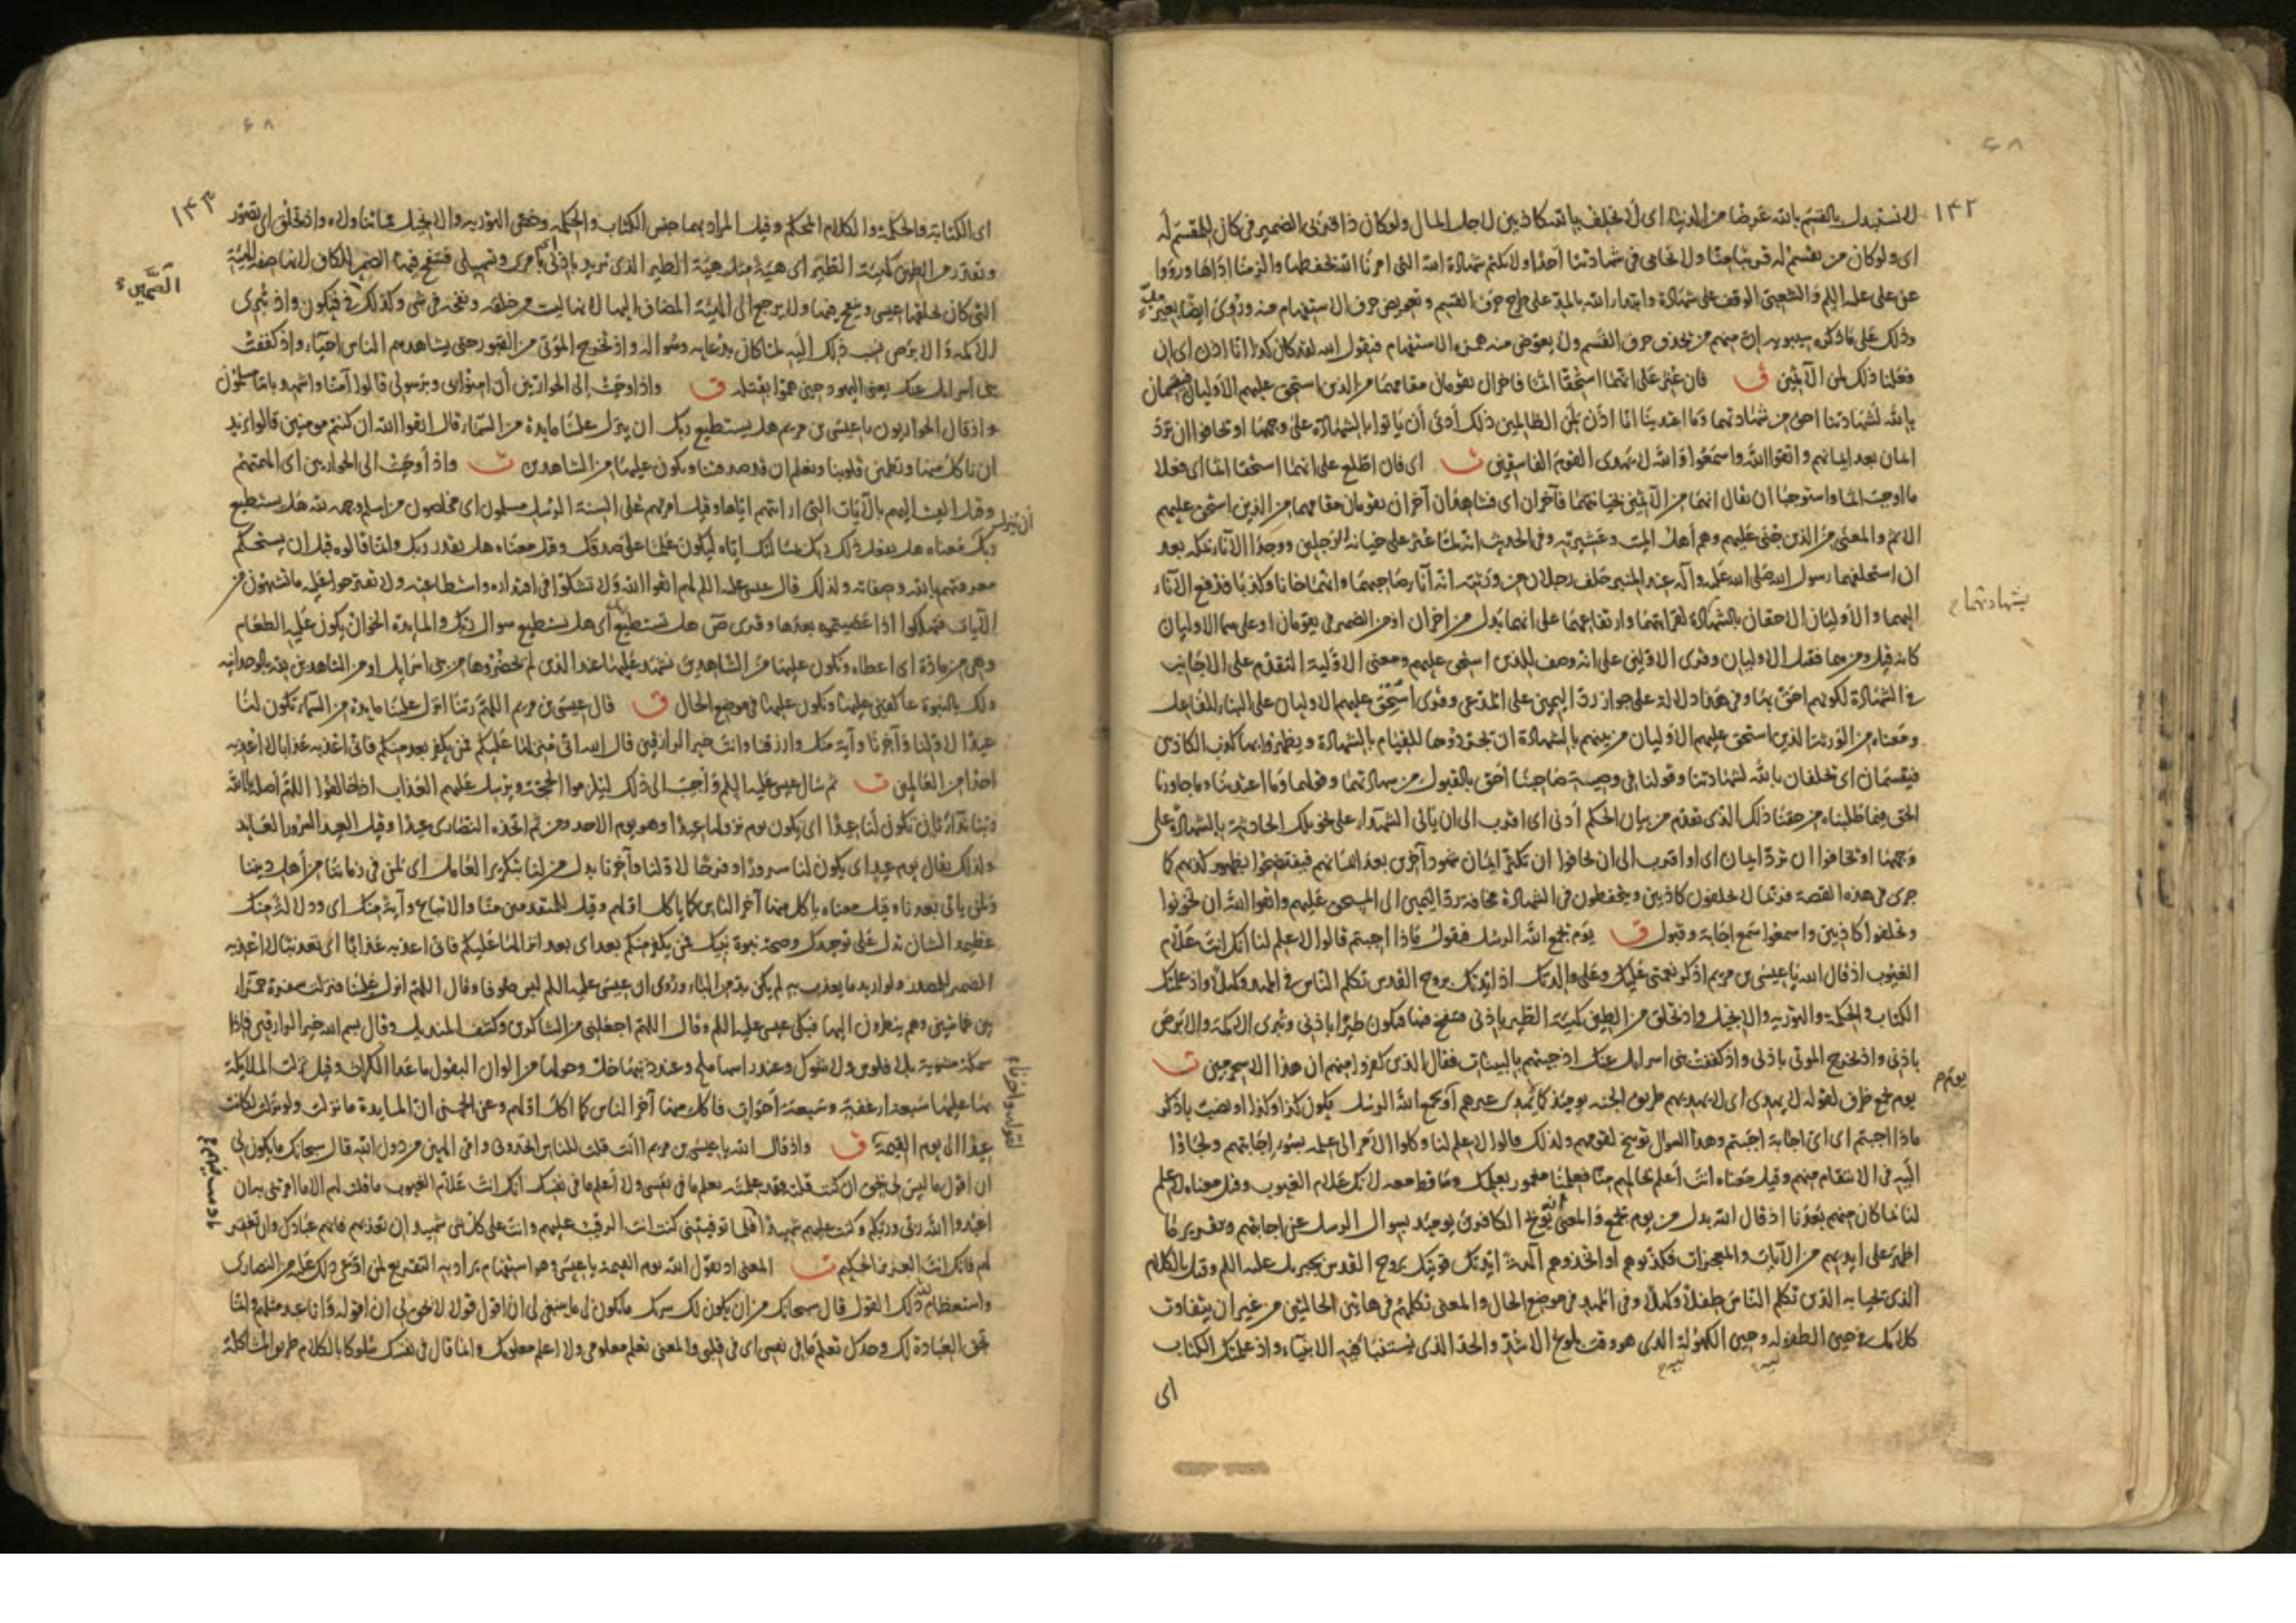 ١٤٢
لا نستبدل بالقسم بالله عرضا من الدنيا اى لا نحلف بالله كاذبين لاجل المال ولو كان ذا قربى الضمير فى كان للمقسم له
اى ولو كان من نقسم له قريبا منا ولا نحامى فى شهادتنا احدا ولا نكتم شهادة الله التى امرنا الله بحفظها والزمنا اداءها ورووا
عن على عليه السلم والشعبى الوقف على شهادة وابتداء الله بالمد على طرح حرف القسم وتعويض حرف الاستفهام منه وروى ايضا بغير مد
وذلك على ما ذكره سيبويه ان منهم من يحذف حرف القسم ولا يعوض منه همزة الاستفهام فيقول الله لقد كان كذا انا اذن اى ان
فعلنا ذلك لمن الآثمين ق فان عثر على انهما استحقا اثما فآخران يقومان مقامهما من الذين استحق عليهم الاوليان فيقسمان
بالله لشهادتنا احق من شهادتهما وما اعتدينا انا اذن لمن الظالمين ذلك ادنى أن يأتوا بالشهادة على وجهها او يخافوا ان ترد
ايمان بعد ايمانهم واتقوا الله واسمعوا والله لا يهدى القوم الفاسقين ت اى فان اطلع على انهما استحقا اثما اى فعلا
ما اوجب اثما واستوجبا ان يقال انهما من الآثمين بخيانتهما فآخران اى فشاهدان آخران يقومان مقامهما من الذين استحق عليهم
الاثم والمعنى من الذين جنى عليهم وهم أهل الميت وعشيرته وفى الحديث انه لما عثر على خيانة الرجلين ووجدا الاناء بمكة بعد
ان استحلفهما رسول الله صلى الله عليه وآله عند المنبر حلف رجلان من ورثته انه اناء صاحبهما وانهما خانا وكذبا فدفع الاناء
اليهما والاوليان الاحقان بالشهادة لقرابتهما وارتفاعهما على انهما بدل من اخران او من الضمير فى يقومان او على هما الاوليان
بشهادتهما
كانه قيل ومن هما فقيل الاوليان وقرى الاولين على انه وصف للذين استحق عليهم ومعنى الاولية التقدم على الاجانب
فى الشهادة لكونهم احق بها وفى هذا دلالة على جواز رد اليمين على المدعى وقرى استحق عليهم الاوليان على البناء للفاعل
ومعناه من الورثة الذين استحق عليهم الاوليان من بينهم بالشهادة ان يجردوهما للقيام بالشهادة ويظهروا بهما كذب الكاذبين
فيقسمان اى يحلفان بالله لشهادتنا وقولنا فى وصية صاحبنا احق بالقبول من شهادتهما وقولهما وما اعتدينا وما جاوزنا
الحق فيما طلبناه من حقنا ذلك الذى تقدم من بيان الحكم أدنى اى اقرب الى ان يأتى الشهداء على نحو تلك الحادثة بالشهادة على
وجهها او يخافوا ان ترد ايمان اى او اقرب الى ان يخافوا ان تكرر ايمان شهود آخرين بعد ايمانهم فيفتضحوا بظهور كذبهم كما
جرى فى هذه القصة فربما لا يحلفون كاذبين ويتحفظون فى الشهادة مخافة رد اليمين الى المستحق عليهم واتقوا الله ان تخونوا
وتحلفوا كاذبين واسمعوا سمع اجابة وقبول ق يوم يجمع الله الرسل فيقول ماذا اجبتم قالوا لا علم لنا انك انت علام
الغيوب اذ قال الله يا عيسى بن مريم اذكر نعمتى عليك وعلى والدتك اذ ايدتك بروح القدس تكلم الناس فى المهد وكهلا واذ علمتك
الكتاب والحكمة والتورية والانجيل واذ تخلق من الطين كهيئة الطير باذنى فتنفخ فيها فتكون طيرا باذنى وتبرى الاكمه والابرص
باذنى واذ تخرج الموتى باذنى واذ كففت بنى اسرايل عنك اذ جئتهم بالبينات فقال الذين كفروا منهم ان هذا الا سحر مبين ت
يوم يجمع ظرف لقوله لا يهدى اى لا يهديهم طريق الجنة يومئذ كما يهدى غيرهم أو يجمع الله الرسل يكون كذا وكذا او نصب باذكر
ماذا اجبتم اى اى اجابة اجبتم وهذا السؤال توبيخ لقومهم ولذلك قالوا لا علم لنا وكلوا الامر الى علمه بسوء اجابتهم ولجاؤا
اليه فى الانتقام منهم وقيل معناه انت أعلم بحالهم منا فعلمنا مغمور بعلمك وساقط معه لانك علام الغيوب وقيل معناه لا علم
لنا بما كان منهم بعدنا اذ قال الله بدل من يوم يجمع والمعنى انه يوبخ الكافرين يومئذ بسوال الرسل عن اجابتهم وبتقرير ما
اظهر على ايديهم من الآيات والمعجزات فكذبوهم او اتخذوهم آلهة ايدتك قويتك بروح القدس بجبريل عليه السلم وقيل بالكلام
الذى يحيا به الدين تكلم الناس طفلا وكهلا وفى المهد فى موضع الحال والمعنى تكلمهم فى هاتين الحالتين من غير ان يتفاوت
كلامك فى حين الطفولة وحين الكهولة الذى هو وقت بلوغ الاشد والحد الذى يستنبأ فيه الانبياء واذ علمتك الكتاب
اى
١٤٣
اى الكتابة والحكمة والكلام المحكم وقيل المراد بهما جنس الكتاب والحكمة وخص التورية والانجيل مما تناولاه واذ تخلق اى تصور
وتقدر من الطين كهيئة الطير اى هيئة مثل هيئة الطير الذى تريد باذنى بامرى وتسهيلى فتنفخ فيها الضمير للكاف لانها صفة الهيئة
التى كان يخلقها عيسى وينفخ فيها ولا يرجع الى الهيئة المضاف اليها لانها ليست من خلقه ونفخه فى شىء وكذلك فى فتكون واذ تبرى
الاكمه والابرص نسب ذلك اليه لما كان بدعايه وسواله واذ تخرج الموتى من القبور حتى يشاهدهم الناس احياء واذ كففت
بنى اسرايل عنك يعنى اليهود حين هموا بقتله ق واذ اوحيت الى الحواريين أن امنوا بى وبرسولى قالوا آمنا واشهد باننا مسلمون
واذ قال الحواريون يا عيسى بن مريم هل يستطيع ربك ان ينزل علينا مايدة من السماء قال اتقوا الله ان كنتم مومنين قالوا نريد
ان نأكل منها وتطمئن قلوبنا ونعلم ان قد صدقتنا ونكون عليها من الشاهدين ت واذ أوحيت الى الحواريين اى الهمتهم
وقيل القيت اليهم بالآيات التى اريتهم اياها وقيل امرتهم على السنة الرسل مسلمون اى مخلصون من اسلم وجهه لله هل يستطيع
ربك معناه هل يفعل ذلك ربك بمسألتك اياه ليكون علما على صدقك وقيل معناه هل يقدر ربك وانما قالوه قبل ان يستحكم
معرفتهم بالله وصفاته ولذلك قال عيسى عليه السلم لهم اتقوا الله ولا تشكوا فى اقتداره واستطاعته ولا تقترحوا عليه ما تشتهون من
الآيات فتهلكوا اذا عصيتموه بعدها وقرى هل تستطيع اى هل تستطيع سوال ربك والمايدة الخوان يكون عليه الطعام
وهى من مادة اى اعطاه ونكون عليها من الشاهدين نشهد عليها عند الذين لم يحضروها من بنى اسرايل او من الشاهدين لله بالوحدانية
ولك بالنبوة عاكفين عليها ونكون عليها فى موضع الحال ق قال عيسى بن مريم اللهم ربنا انزل علينا مايدة من السماء تكون لنا
عيدا لاولنا وآخرنا وآية منك وارزقنا وانت خير الرازقين قال الله انى منزلها عليكم فمن يكفر بعد منكم فانى اعذبه عذابا لا اعذبه
احدا من العالمين ت ثم سال عيسى عليه السلم وأجيب الى ذلك ليلزموا الحجة ويرسل عليهم العذاب اذا خالفوا اللهم أصله يا الله
ربنا نداء ثان تكون لنا عيدا اى يكون يوم نزولها عيدا وهو يوم الاحد ومن ثم اتخذه النصارى عيدا وقيل العيد السرور العايد
ولذلك يقال يوم عيد اى يكون لنا سرورا وفرحا لاولنا وآخرنا بدل من لنا بتكرير العامل اى لمن فى زماننا من أهل ديننا
ولمن ياتى بعدنا وقيل معناه ياكل منها آخر الناس كما ياكل اولهم وقيل للمتقدمين منا والاتباع وآية منك اى ودلالة منك
عظيمة الشان تدل على توحيدك وصحة نبوة نبيك فمن يكفر منكم بعد اى بعد انزالها عليكم فانى اعذبه عذابا اى تعذيبا لا اعذبه
الضمير للمصدر ولو اريد ما يعذب به لم يكن بد من الباء وروى ان عيسى عليه السلم لبس صوفا وقال اللهم انزل علينا فنزلت سفرة حمراء
بين غمامتين وهم ينظرون اليها فبكى عيسى عليه السلم وقال اللهم اجعلنى من الشاكرين وكشف المنديل وقال بسم الله خير الرازقين فاذا
سمكة مشوية بلا فلوس ولا شوك وعند راسها ملح وعند ذنبها خل وحولها من الوان البقول ما عدا الكراث وقيل نزلت الملائكة
بها عليها سبعة ارغفة وسبعة أحوات فاكل منها آخر الناس كما اكل اولهم وعن الحسن ان المايدة ما نزلت ولو نزلت لكانت
عيدا الى يوم القيمة ق واذ قال الله يا عيسى بن مريم اانت قلت للناس اتخذونى وامى الهين من دون الله قال سبحانك ما يكون لى
ان اقول ما ليس لى بحق ان كنت قلته فقد علمته تعلم ما فى نفسى ولا أعلم ما فى نفسك انك انت علام الغيوب ما قلت لهم الا ما امرتنى به ان
اعبدوا الله ربى وربكم وكنت عليهم شهيدا فلما توفيتنى كنت انت الرقيب عليهم وانت على كل شىء شهيد ان تعذبهم فانهم عبادك وان تغفر
لهم فانك انت العزيز الحكيم ت المعنى اذ يقول الله يوم القيمة يا عيسى وهو استفهام يراد به التقريع لمن ادعى ذلك عليه من النصارى
واستعظام لذلك القول قال سبحانك من ان يكون لك شريك ما يكون لى ما ينبغى لى ان اقول قولا لا يحق لى ان اقوله وانا عبد مثلهم وانما
تحق العبادة لك وحدك تعلم ما فى نفسى اى فى قلبى والمعنى تعلم معلومى ولا اعلم معلومك وانما قال فى نفسك سلوكا بالكلام طريق المشاكلة